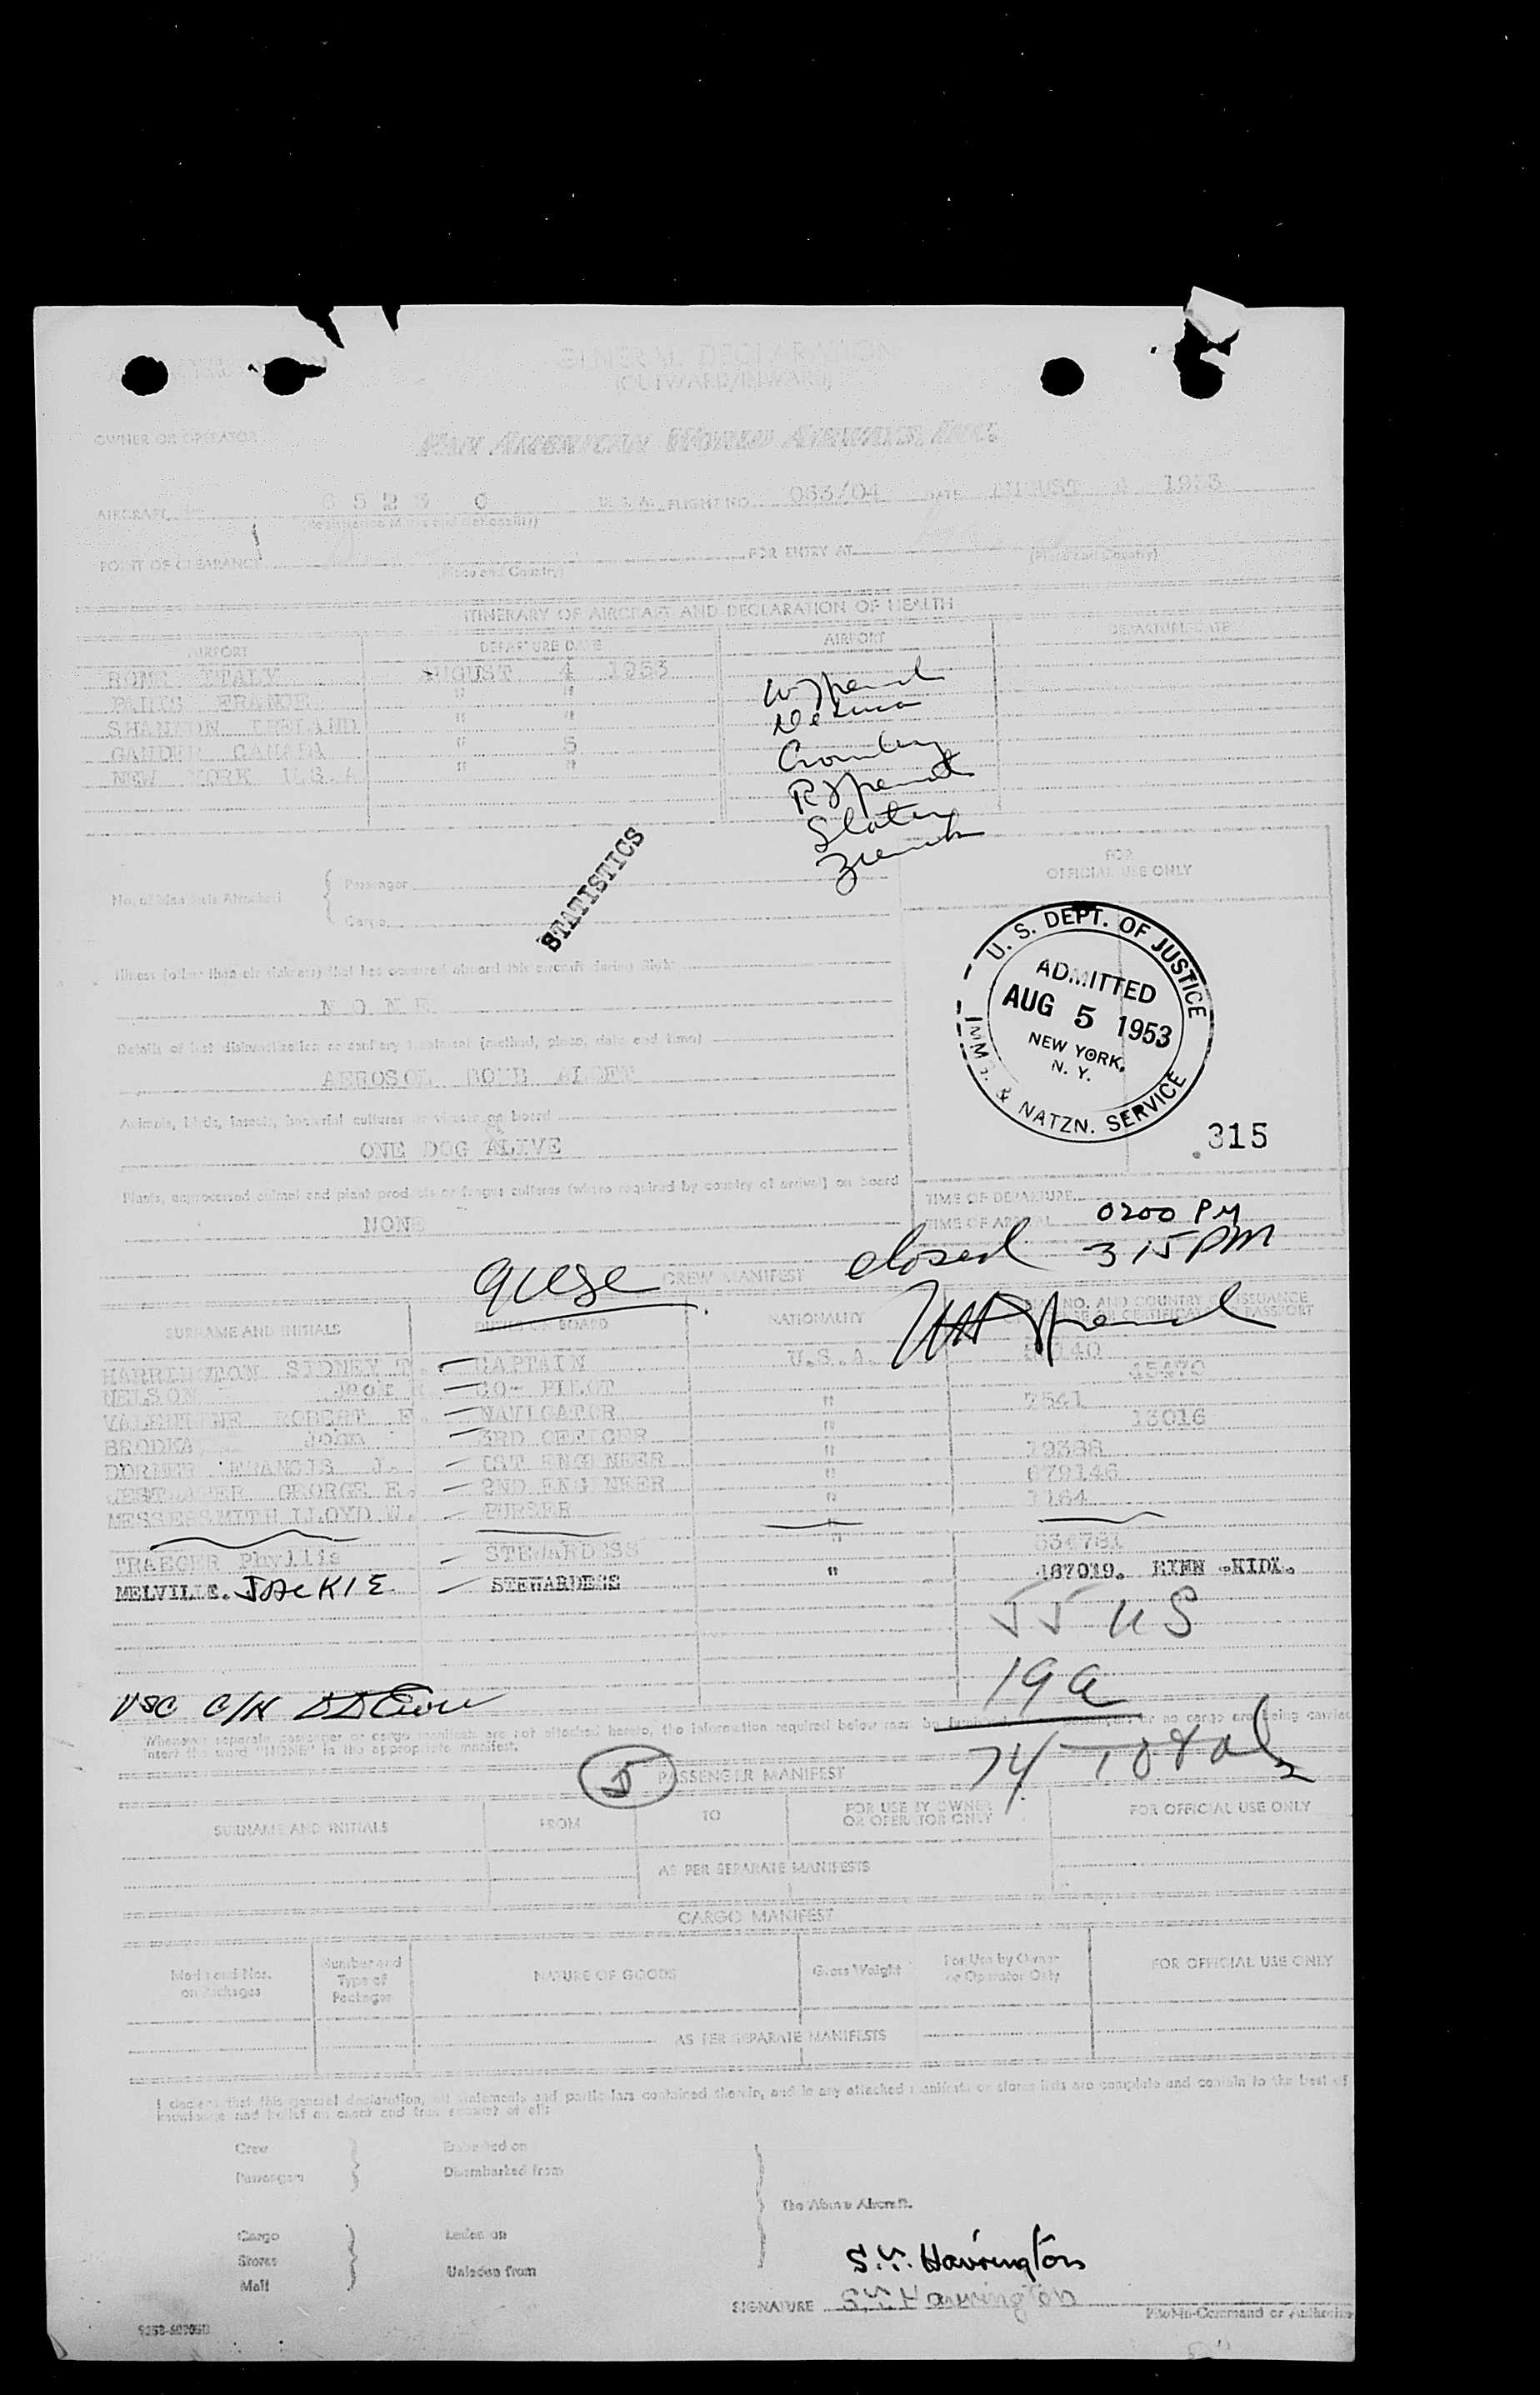 GENERAL DECLARATION
(OUTWARD/INWARD)
OWNER OR OPERATOR PAN AMERICAN WORLD AIRWAYS, INC.
AIRCRAFT U.S.A. FLIGHT NO. 063/04 DATE AUGUST 4 1953
(Registration Marks and Nationality)
POINT OF CLEARANCE FOR ENTRY AT
(Place and Country) (Place and Country)
ITINERARY OF AIRCRAFT AND DECLARATION OF HEALTH
AIRPORT DEPARTURE DATE AIRPORT DEPARTURE DATE
ROME ITALY AUGUST 4 1953
PARIS FRANCE " "
SHANNON IRELAND " "
GANDER CANADA " 5
NEW YORK U.S.A. " "
Crowley
Slater
STATISTICS
No. of Manifests Attached { Passenger
Cargo
FOR
OFFICIAL USE ONLY
Illness (other than air sickness) that has occurred aboard this aircraft during flight
NONE
Details of last disinsectization or sanitary treatment (method, place, date and time)
AEROSOL BOMB
Animals, birds, insects, bacterial cultures or viruses on board
ONE DOG ALIVE
Plants, unprocessed animal and plant products or fungus cultures (where required by country of arrival) on board
NONE
U. S. DEPT. OF JUSTICE
ADMITTED
AUG 5 1953
NEW YORK,
N. Y.
IMM. & NATZN. SERVICE
315
TIME OF DEPARTURE
TIME OF ARRIVAL 0200 PM
closed 3 15 PM
CREW MANIFEST
SURNAME AND INITIALS DUTIES ON BOARD NATIONALITY NO. AND COUNTRY OF ISSUANCE
OR CERTIFICATE PASSPORT
HARRINGTON SIDNEY T. CAPTAIN U.S.A.
NELSON CO-PILOT 45470
VALENTINE ROBERT F. NAVIGATOR " 7541
BRODKA JOHN 3RD OFFICER " 13016
DORMER FRANCIS J. 1ST ENGINEER " 19388
GEORGE R. 2ND ENGINEER " 679146
MESSERSMITH LLOYD W. PURSER " 1164
TRAEGER Phyllis STEWARDESS " 634781
MELVILLE. JACKIE STEWARDESS " 187019.
55 US
19 a
74 Total
USC C/H
Whenever separate passenger or cargo manifests are not attached hereto, the information required below must be furnished. passengers or no cargo are being carried
insert the word "NONE" in the appropriate manifest.
5
PASSENGER MANIFEST
SURNAME AND INITIALS FROM TO FOR USE BY OWNER
OR OPERATOR ONLY FOR OFFICIAL USE ONLY
AS PER SEPARATE MANIFESTS
CARGO MANIFEST
Marks and Nos.
on Packages Number and
Type of
Packages NATURE OF GOODS Gross Weight For Use by Owner
or Operator Only FOR OFFICIAL USE ONLY
AS PER SEPARATE MANIFESTS
I declare that this general declaration, all statements and particulars contained therein, and in any attached manifests or stores lists are complete and contain to the best of
knowledge and belief an exact and true account of all:
Crew Embarked on
Passengers Disembarked from
The Above Aircraft.
Cargo Laden on
Stores
Mail Unladen from
S.T. Harrington
SIGNATURE S.T. Harrington
Pilot-in-Command or Authorized